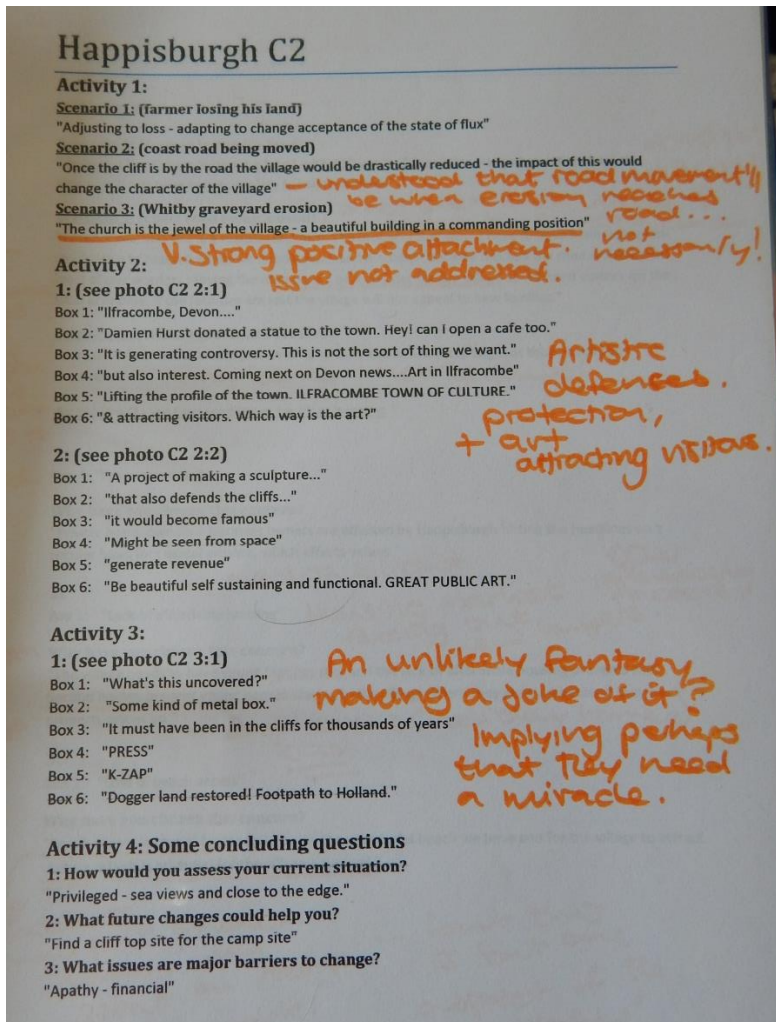 Happisburgh C2
Activity 1:
Scenario 1: (farmer losing his land)
"Adjusting to loss - adapting to change acceptance of the state of flux"
Scenario 2: (coast road being moved)
"Once the cliff is by the road the village would be drastically reduced - the impact of this would
change the character of the village" — understood that road movement'll
be when erosion reaches
road...
not
necessarily!
Scenario 3: (Whitby graveyard erosion)
"The church is the jewel of the village - a beautiful building in a commanding position"
V. Strong positive attachment.
issue not addressed.
Activity 2:
1: (see photo C2 2:1)
Box 1: "Ilfracombe, Devon...."
Box 2: "Damien Hurst donated a statue to the town. Hey! can I open a cafe too."
Box 3: "It is generating controversy. This is not the sort of thing we want."
Box 4: "but also interest. Coming next on Devon news....Art in Ilfracombe"
Box 5: "Lifting the profile of the town. ILFRACOMBE TOWN OF CULTURE."
Box 6: "& attracting visitors. Which way is the art?"
Artistic
defenses.
protection,
+ art
attracting visitors.
2: (see photo C2 2:2)
Box 1: "A project of making a sculpture..."
Box 2: "that also defends the cliffs..."
Box 3: "it would become famous"
Box 4: "Might be seen from space"
Box 5: "generate revenue"
Box 6: "Be beautiful self sustaining and functional. GREAT PUBLIC ART."
Activity 3:
1: (see photo C2 3:1)
Box 1: "What's this uncovered?"
Box 2: "Some kind of metal box."
Box 3: "It must have been in the cliffs for thousands of years"
Box 4: "PRESS"
Box 5: "K-ZAP"
Box 6: "Dogger land restored! Footpath to Holland."
An unlikely fantasy,
making a joke of it?
Implying perhaps
that they need
a miracle.
Activity 4: Some concluding questions
1: How would you assess your current situation?
"Privileged - sea views and close to the edge."
2: What future changes could help you?
"Find a cliff top site for the camp site"
3: What issues are major barriers to change?
"Apathy - financial"